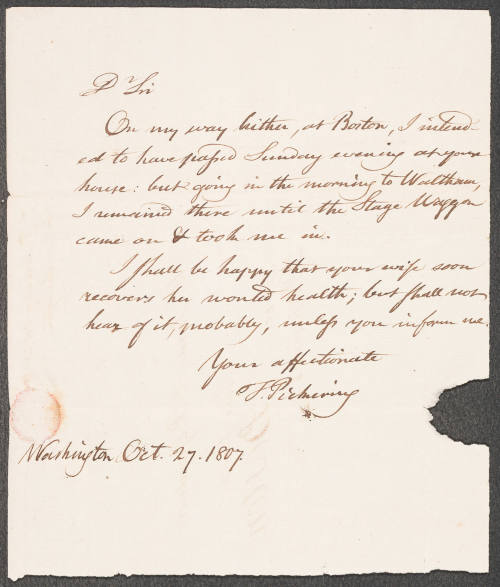 Dr Sir
On my way hither, at Boston, I intend-
ed to have passed Sunday evening at your
house: but going in the morning to Waltham,
I remained there until the Stage Waggon
came on & took me in.
I shall be happy that your wife soon
recovers her wonted health; but shall not
hear of it, probably, unless you inform me.
Your affectionate
T. Pickering
Washington Oct. 27. 1807.